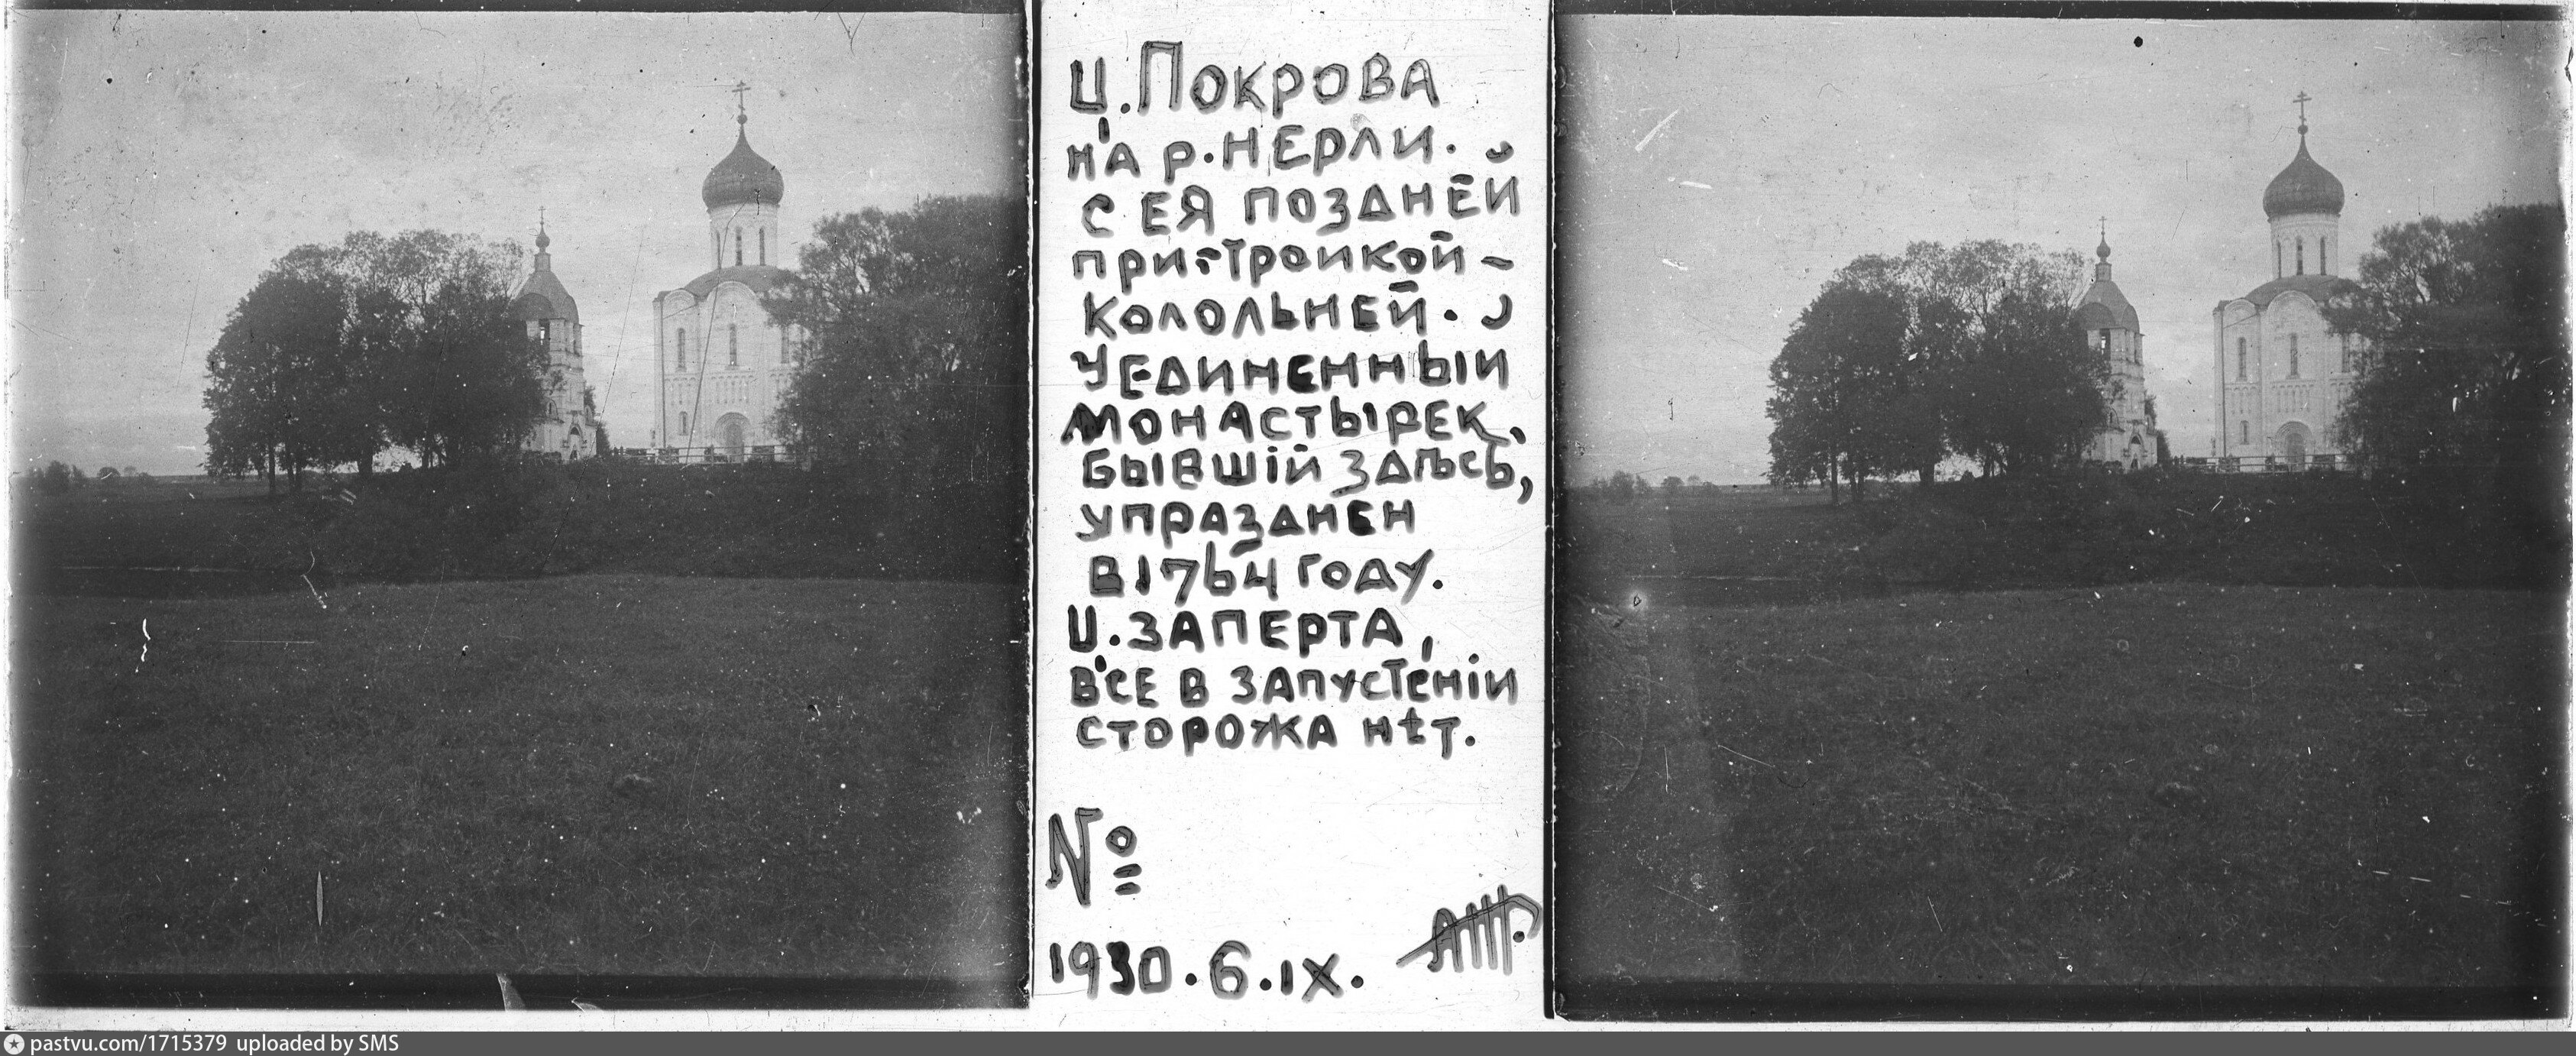 Ц. ПОКРОВА
НА Р. НЕРЛИ.
С ЕЯ ПОЗДНЕЙ
ПРИСТРОЙКОЙ -
КОЛОЛЬНЕЙ.
УЕДИНЕННЫЙ
МОНАСТЫРЕК,
БЫВШІЙ ЗДѢСЬ,
УПРАЗДНЕН
В 1764 ГОДУ.
Ц. ЗАПЕРТА,
ВСЕ В ЗАПУСТЕНІИ
СТОРОЖА НѢТ.
№
1930. 6. IX.
pastvu.com/1715379 uploaded by SMS